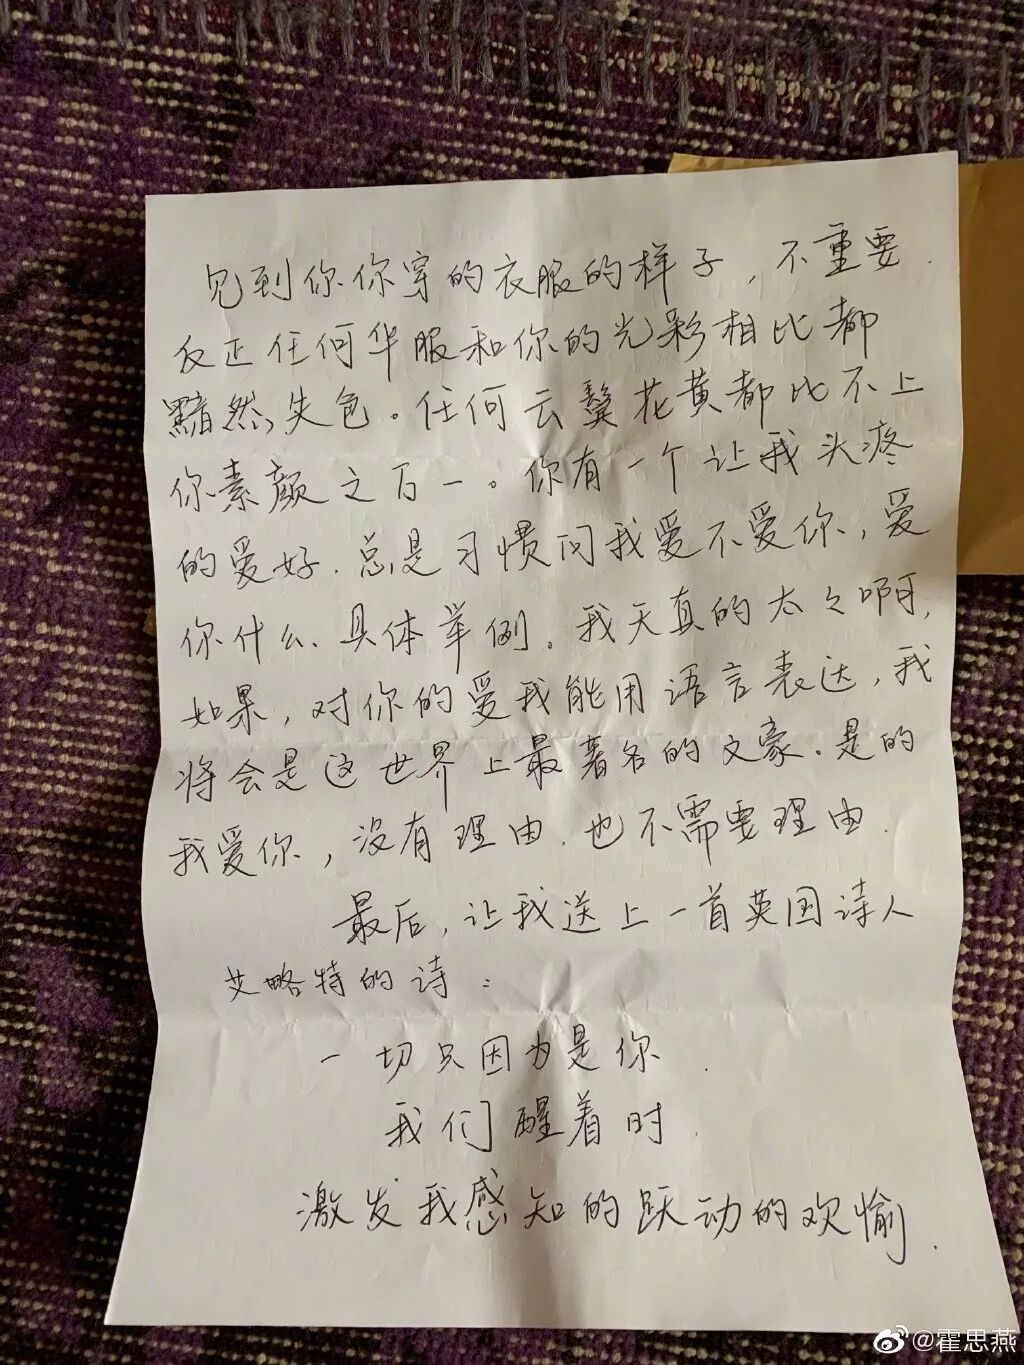 见到你你穿的衣服的样子，不重要.
反正任何华服和你的光彩相比都
黯然失色。任何云鬓花黄都比不上
你素颜之百一。你有一个让我头疼
的爱好.总是习惯问我爱不爱你，爱
你什么、具体举例。我天真的太々啊,
如果，对你的爱我能用语言表达，我
将会是这世界上最著名的文豪.是的
我爱你，没有理由.也不需要理由.
最后,让我送上一首英国诗人
艾略特的诗：
一切只因为是你.
我们醒着时.
激发我感知的跃动的欢愉.
@霍思燕